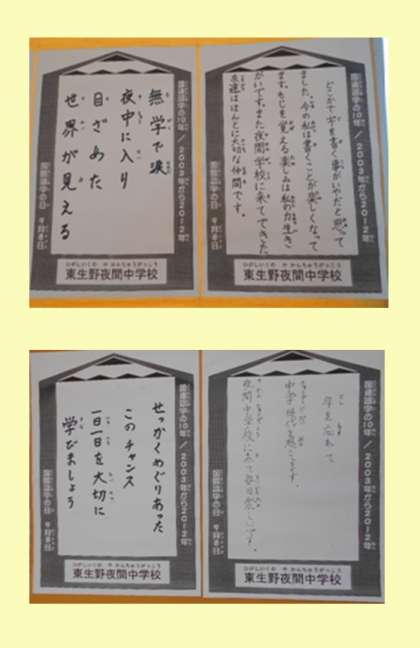 国連識字の10年/2003年から2012年
どこかで字を書く事がいやだと思って
ました。今の私は書くことが楽しくなって
ます。もじを覚える楽しみは私の力生き
がいです。また夜間学校に来てできた
友達はほんとに大切な仲間です。
国際識字の日 9月8日
ひがしいくの や かんちゅうがっこう
東生野夜間中学校
国連識字の10年/2003年から2012年
無学で涙
夜中に入り
目ざめた
世界が見える
国際識字の日 9月8日
ひがしいくの や かんちゅうがっこう
東生野夜間中学校
国連識字の10年/2003年から2012年
年を忘れて
中学時代を
夜間中学校に来て毎日楽しいです。
国際識字の日 9月8日
ひがしいくの や かんちゅうがっこう
東生野夜間中学校
国連識字の10年/2003年から2012年
せっかくめぐりあった
このチャンス
一日一日を大切に
学びましょう
国際識字の日 9月8日
ひがしいくの や かんちゅうがっこう
東生野夜間中学校